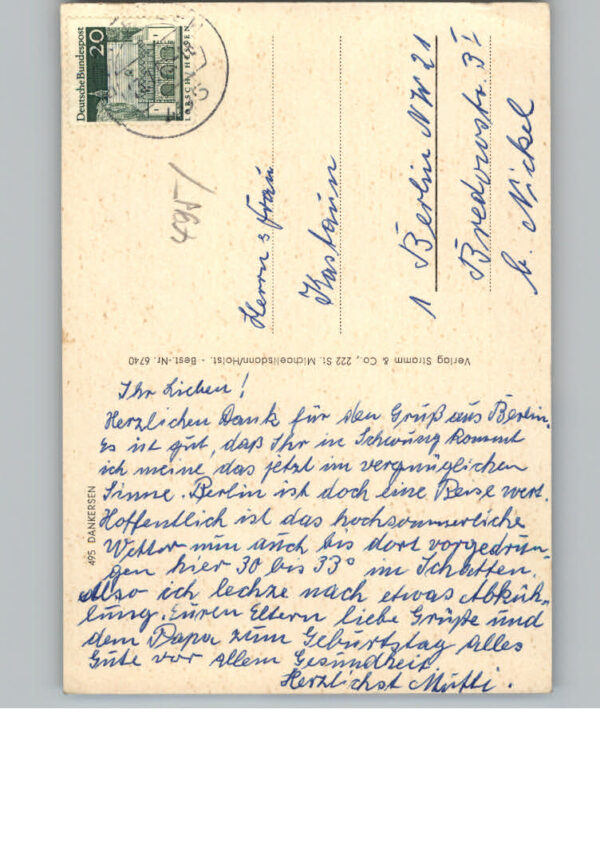 Deutsche Bundespost
20
LORSCH / HESSEN
495/
Herrn & Frau
Kastaun
1 Berlin NW 21
Bredowstr. 3 I
b. Nickel
Verlag Stramm & Co., 222 St. Michaelisdonn/Holst. - Best.-Nr. 6740
495 DANKERSEN
Ihr Lieben!
Herzlichen Dank für den Gruß aus Berlin.
Es ist gut, daß Ihr in Schwung kommt
ich meine das jetzt im vergnüglichen
Sinne. Berlin ist doch eine Reise wert.
Hoffentlich ist das hochsommerliche
Wetter nun auch bis dort vorgedrun-
gen hier 30 bis 33° im Schatten.
Also ich lechze nach etwas Abküh-
lung. Euren Eltern liebe Grüße und
dem Papa zum Geburtstag alles
Gute vor allem Gesundheit.
Herzlichst Mutti.